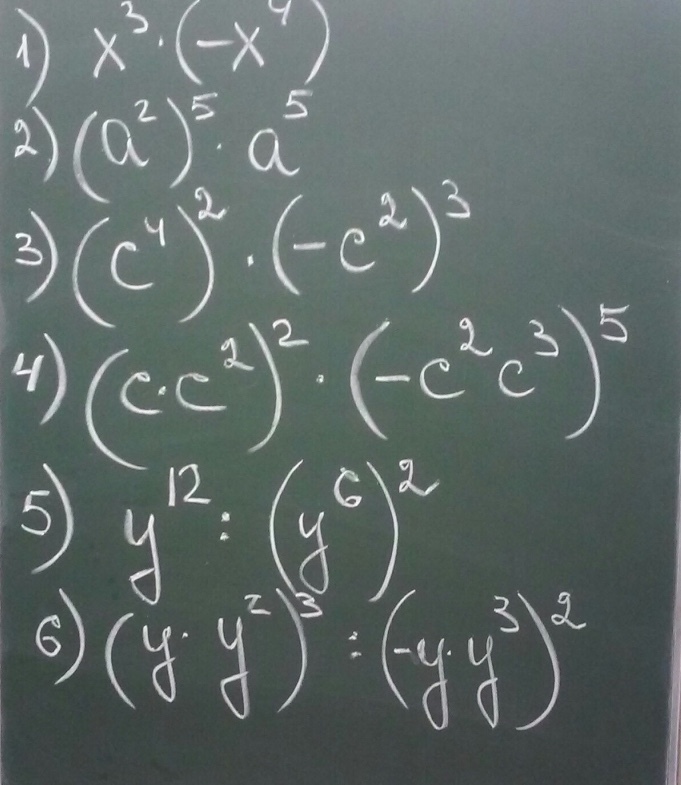 1) x³·(-x⁴)
2) (a²)⁵·a⁵
3) (c⁴)²·(-c²)³
4) (c·c²)²·(-c²c³)⁵
5) y¹²:(y⁶)²
6) (y·y²)³:(-y·y³)²